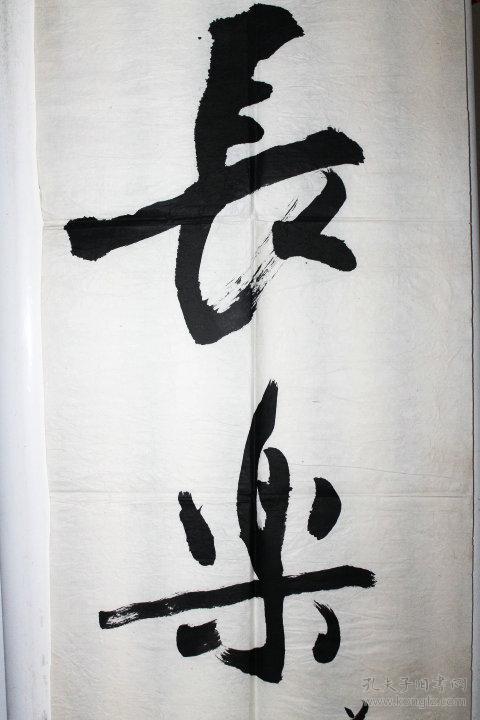 長樂
孔夫子旧书网
www.kongfz.com